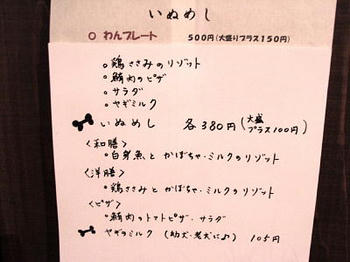 いぬめし
○ わんプレート 500円(大盛りプラス150円)
○鶏ささみのリゾット
○鮪肉のピザ
○サラダ
○ヤギミルク
いぬめし 各380円(大盛プラス100円)
〈和膳〉
○白身魚と かぼちゃ・ミルクのリゾット
〈洋膳〉
・鶏ささみと かぼちゃ・ミルクのリゾット
〈ピザ〉
・鮪肉のトマトピザ・サラダ
ヤギのミルク (幼犬・老犬に♪) 105円